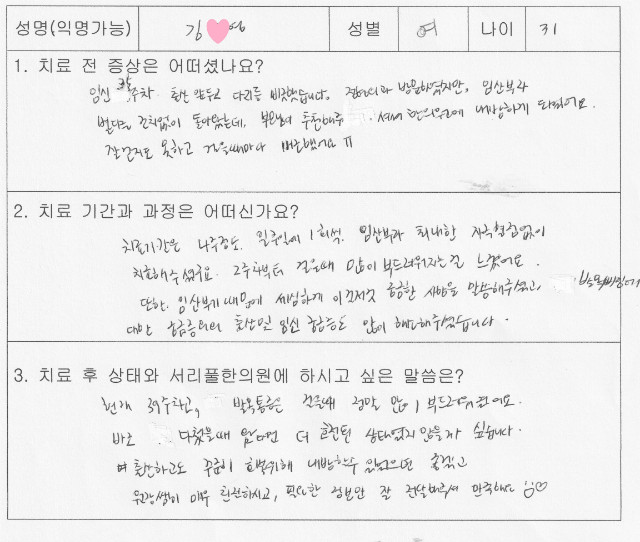 성명(익명가능) 김 영 성별 여 나이 31
1. 치료 전 증상은 어떠셨나요?
임신 35주차. 출산 앞두고 다리를 삐끗했습니다. 정형외과 방문하였지만, 임산부라
별다른 조치없이 돌아왔는데, 추천해주 셔서 한의원에 내방하게 되었어요.
잘 걷지도 못하고 걸을때마다 ㅠ
2. 치료 기간과 과정은 어떠신가요?
치료기간은 나주정도. 일주일에 1회씩. 임산부라 최대한 자극없이
치료해주셨구요. 2주차부터 걸을때 많이 부드러워지는걸 느꼈어요.
또한, 임산부기 때문에 세심하게 이것저것 궁금한 사항을 말씀해주셨고,
대한 궁금증외의 출산및 임신 궁금증도 많이 해소해주셨습니다.
3. 치료 후 상태와 서리풀한의원에 하시고 싶은 말씀은?
현재 39주차고, 발목통증은 걸을때 정말 많이 부드러워졌어요.
바로 다쳤을때 왔다면 더 호전된 상태였지 않을까 싶습니다.
출산하고도 꾸준히 회복위해 내방할수 있었으면 좋겠고
원장쌤이 매우 친절하시고, 필요한 정보만 잘 전달해주셔 만족해요 ♡